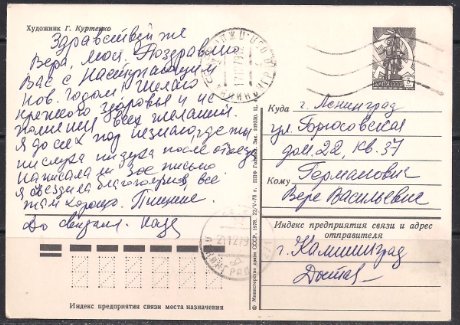 Художник Г. Куртенко
Здравствуй же
Вера, моя. Поздравляю
Вас с Наступающим
Нов. Годом! Желаю
крепкого здоровья и ис-
полнения всех желаний.
Я до сих пор не знаю где ты
ни слуха ни духа после отъезда
написала и Зое письмо
Я съездила благополучно, все
там хорошо. Пишите.
До свидания. Надя
Куда г. Ленинград
ул. Брюсовская
дом 22, кв. 37
Кому Германович
Вере Васильевне
Индекс предприятия связи и адрес
отправителя
г. Калининград
Индекс предприятия связи места назначения